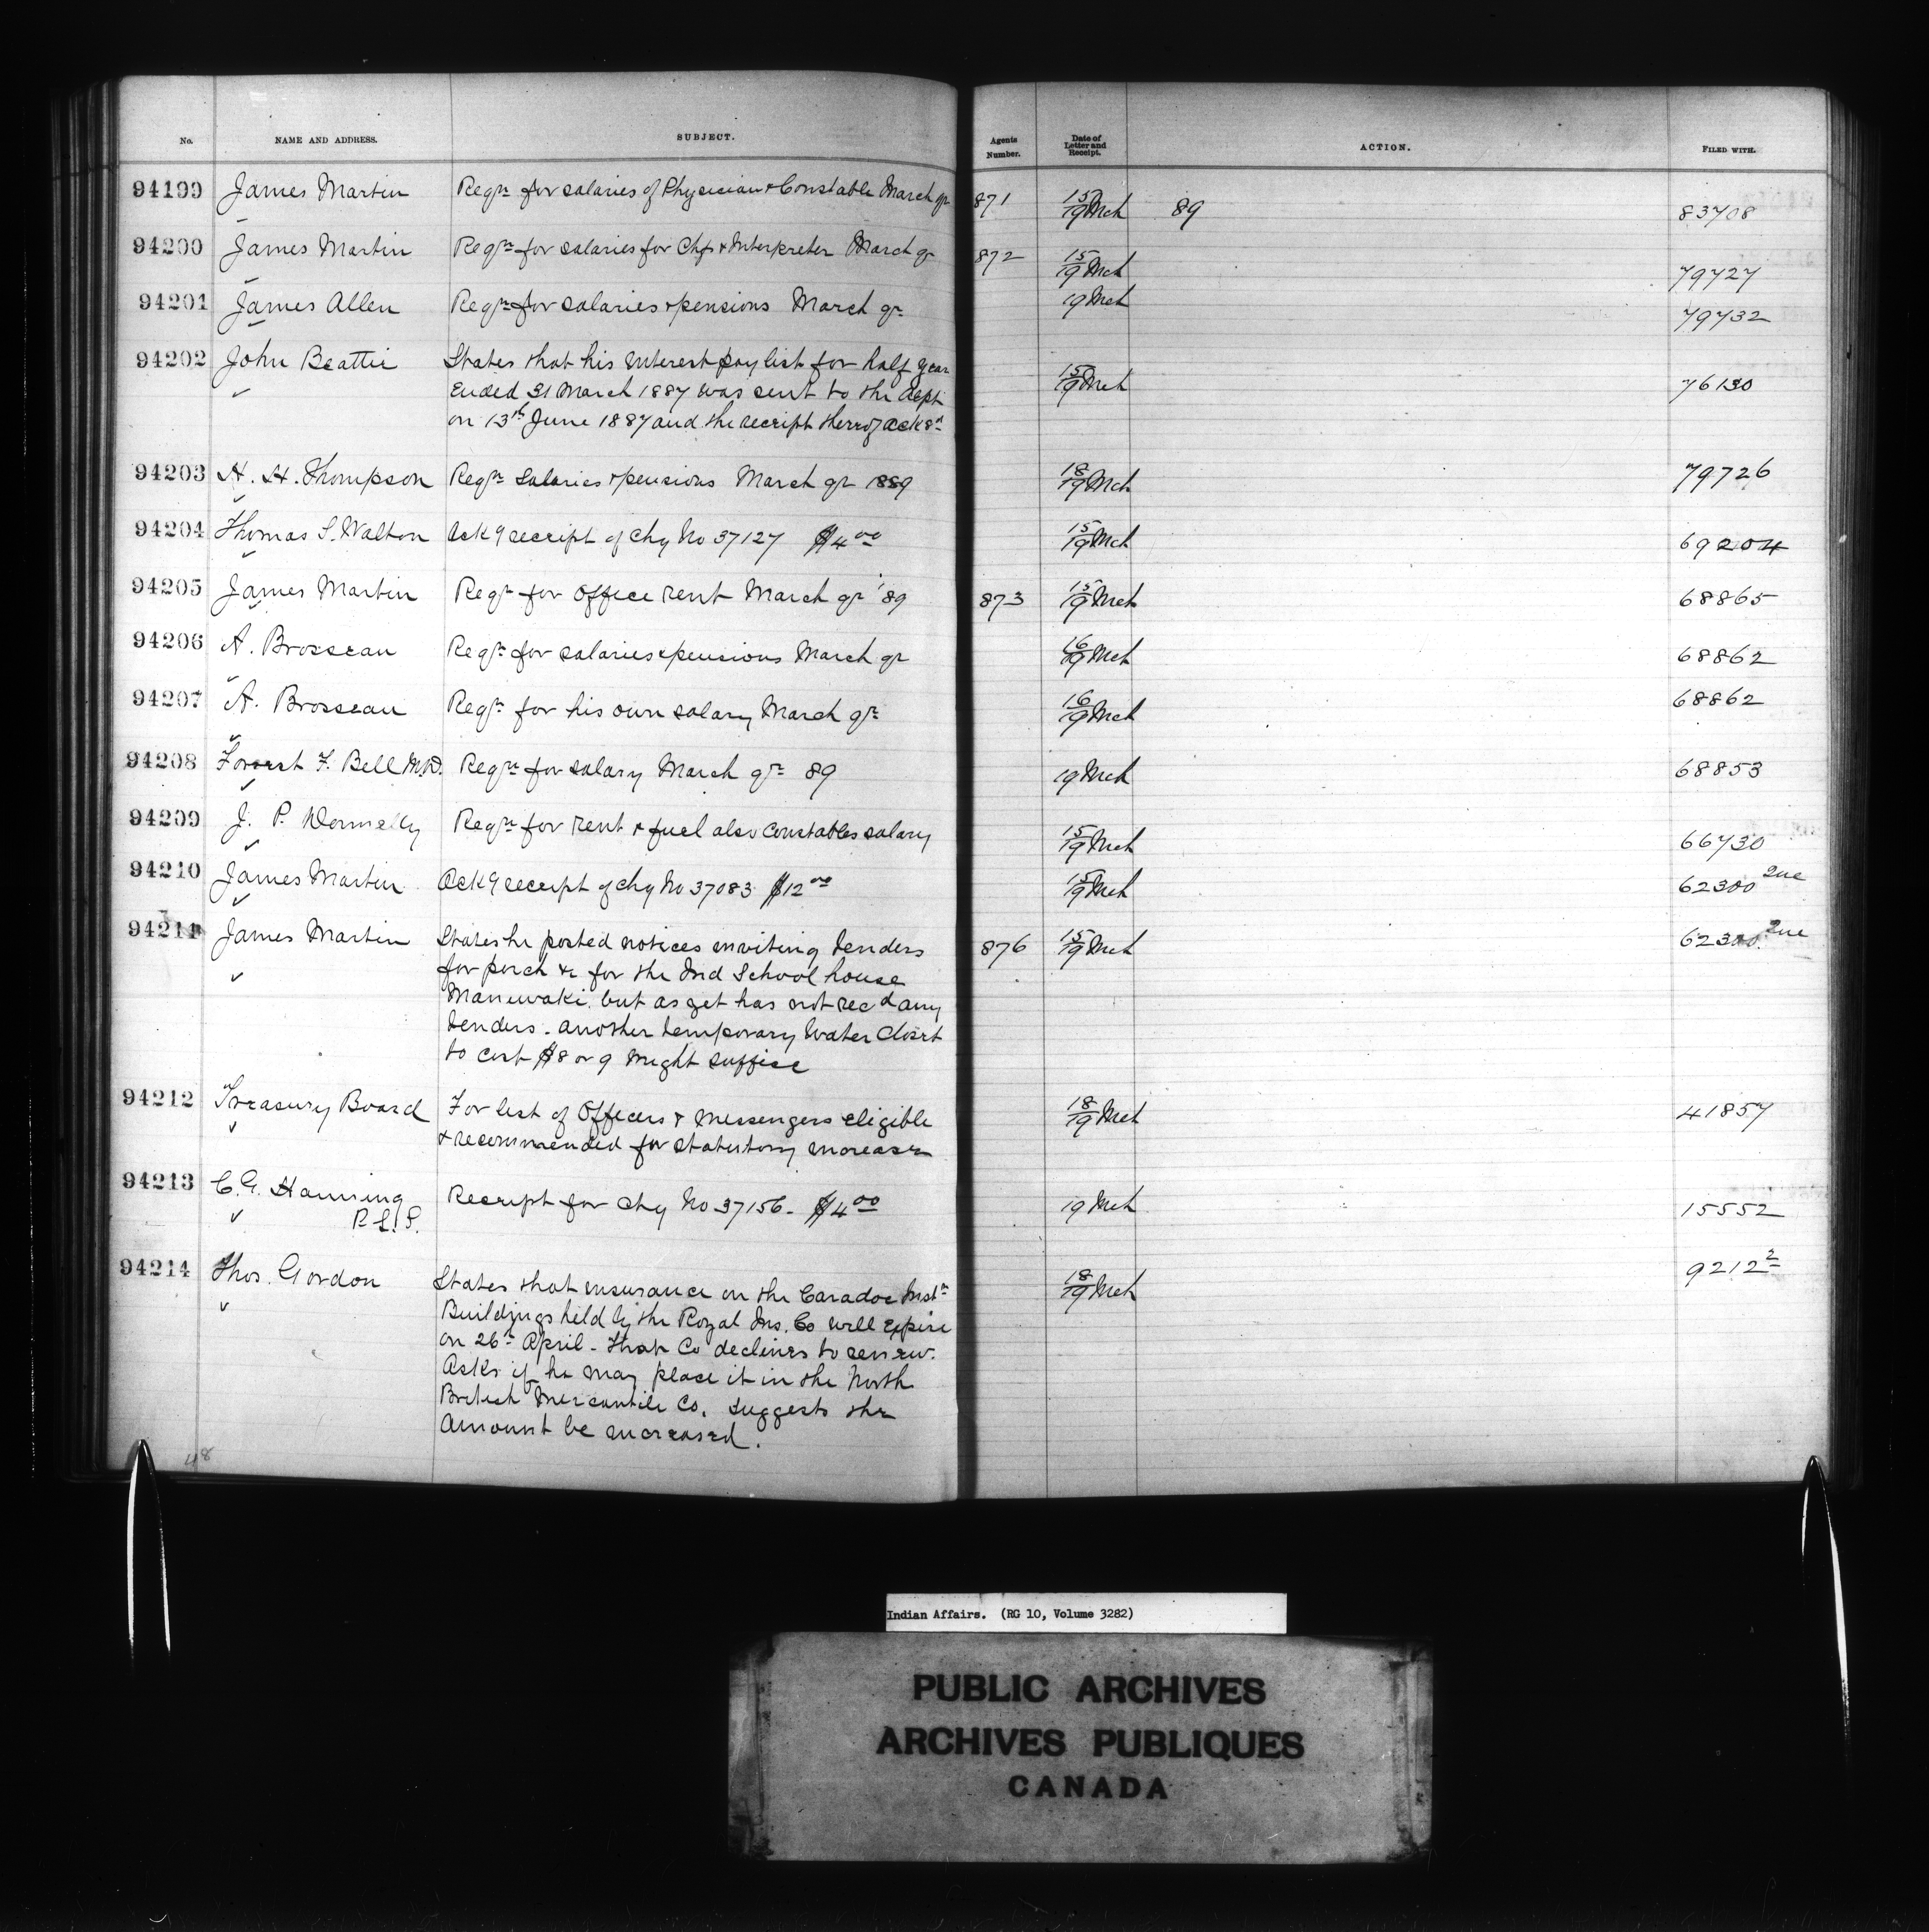 No. NAME AND ADDRESS. SUBJECT. Agents Number. Date of Letter and Receipt. ACTION. FILED WITH.
94199 James Martin Reqn for salaries of Physician & Constable March qr 871 15/19 Mch 89 83708
94200 James Martin Reqn for salaries for Chfs & Interpreter March qr 872 15/19 Mch 79727
94201 James Allen Reqn for salaries & pensions March qr 19 Mch 79732
94202 John Beattie States that his interest pay list for half year 15/19 Mch 76130
ended 31 March 1887 was sent to the Dept
on 13th June 1887 and the receipt thereof ackgd
94203 H. H. Thompson Reqn salaries & pensions March qr 1889 18/19 Mch 79726
94204 Thomas S. Walton Ackg receipt of chq No 37127 $4.00 15/19 Mch 69204
94205 James Martin Reqn for office rent March qr '89 873 15/19 Mch 68865
94206 A. Brosseau Reqn for salaries & pensions March qr 16/19 Mch 68862
94207 A. Brosseau Reqn for his own salary March qr 16/19 Mch 68862
94208 Forrest F. Bell M.D. Reqn for salary March qr 89 19 Mch 68853
94209 J. P. Donnelly Reqn for rent & fuel also Constables salary 15/19 Mch 66730
94210 James Martin Ackg receipt of chq No 37083 $12.00 15/19 Mch 62300 Que
94211 James Martin States he posted notices inviting tenders 876 15/19 Mch 62300 Que
for porch &c for the Ind School house
Maniwaki but as yet has not recd any
tenders. another temporary water closet
to cost $8 or 9 might suffice
94212 Treasury Board For list of Officers & Messengers eligible 18/19 Mch 41857
& recommended for statutory increase
94213 C. G. Hanning Receipt for chq No 37156 - $4.00 19 Mch 15552
P. L. S.
94214 Thos. Gordon States that insurance on the Caradoc Instn 18/19 Mch 9212 2
Buildings held by the Royal Ins. Co will expire
on 26th April - that Co declines to renew.
Asks if he may place it in the North
British Mercantile Co. Suggests the
amount be increased.
48
Indian Affairs. (RG 10, Volume 3282)
PUBLIC ARCHIVES
ARCHIVES PUBLIQUES
CANADA